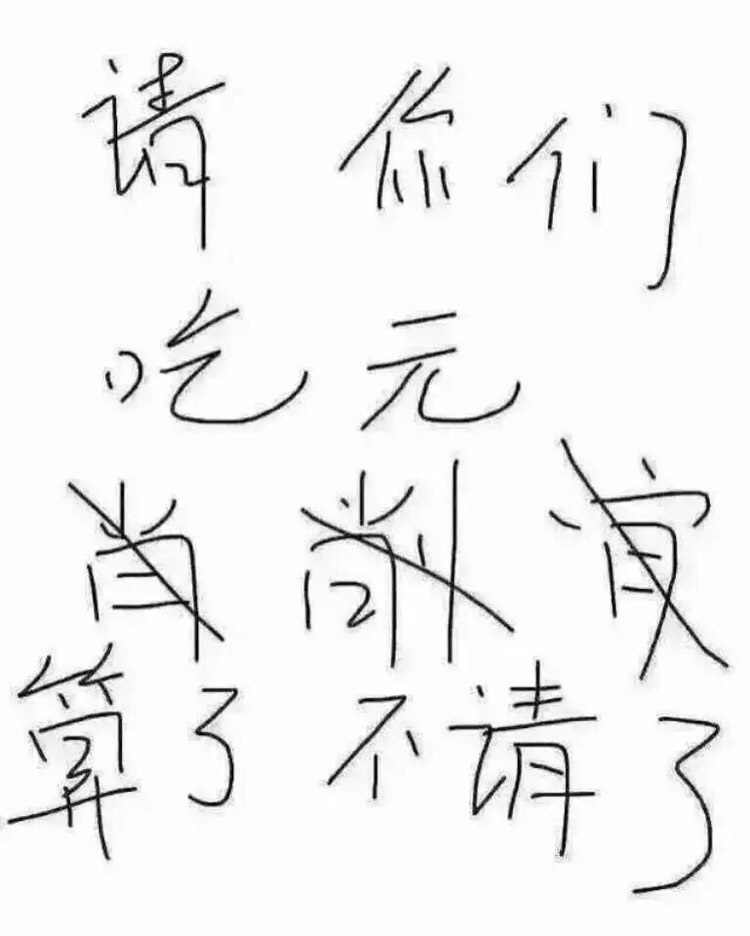 请你们
吃元
肖削宵
算了不请了